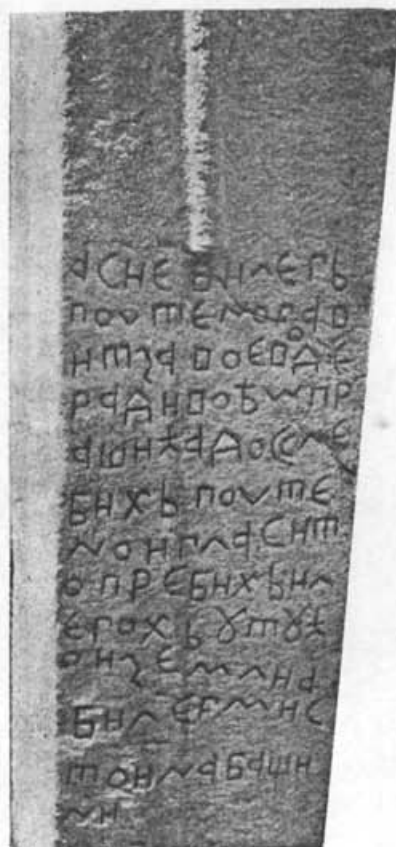 асие билегь
поѵтеногав
итза воеводе
радивоѣѡпр
ашиꙉадосле
бихь поѵте
но и гласит
о пребихь и л
егохь ꙋ тꙋꙉ
ои земли а
билег ми с
тои на башти
ни